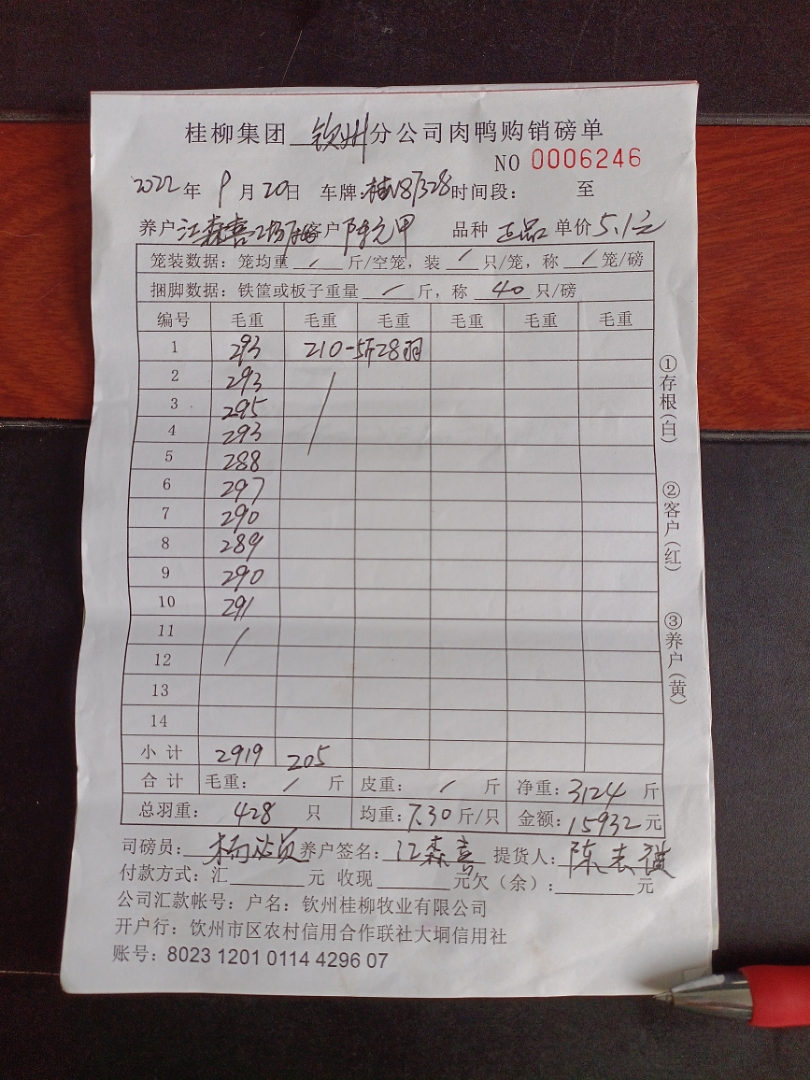 桂柳集团 钦州 分公司肉鸭购销磅单
NO 0006246
2022 年 9 月 20 日 车牌: 时间段: 至
养户 江森喜 客户 陈元甲 品种 正品 单价 5.1元
笼装数据: 笼均重 / 斤/空笼, 装 / 只/笼, 称 / 笼/磅
捆脚数据: 铁筐或板子重量 / 斤, 称 40 只/磅
编号 毛重 毛重 毛重 毛重 毛重 毛重
1 293 210-5斤28羽
2 293 /
3 295
4 293
5 288
6 297
7 290
8 289
9 290
10 291
11 /
12
13
14
小计 2919 205
合计 毛重: / 斤 皮重: / 斤 净重: 3124 斤
总羽重: 428 只 均重: 7.30 斤/只 金额: 15932 元
司磅员: 养户签名: 江森喜 提货人: 陈
付款方式: 汇 元 收现 元欠(余): 元
公司汇款帐号: 户名: 钦州桂柳牧业有限公司
开户行: 钦州市区农村信用合作联社大垌信用社
账号: 8023 1201 0114 4296 07
①存根(白)
②客户(红)
③养户(黄)